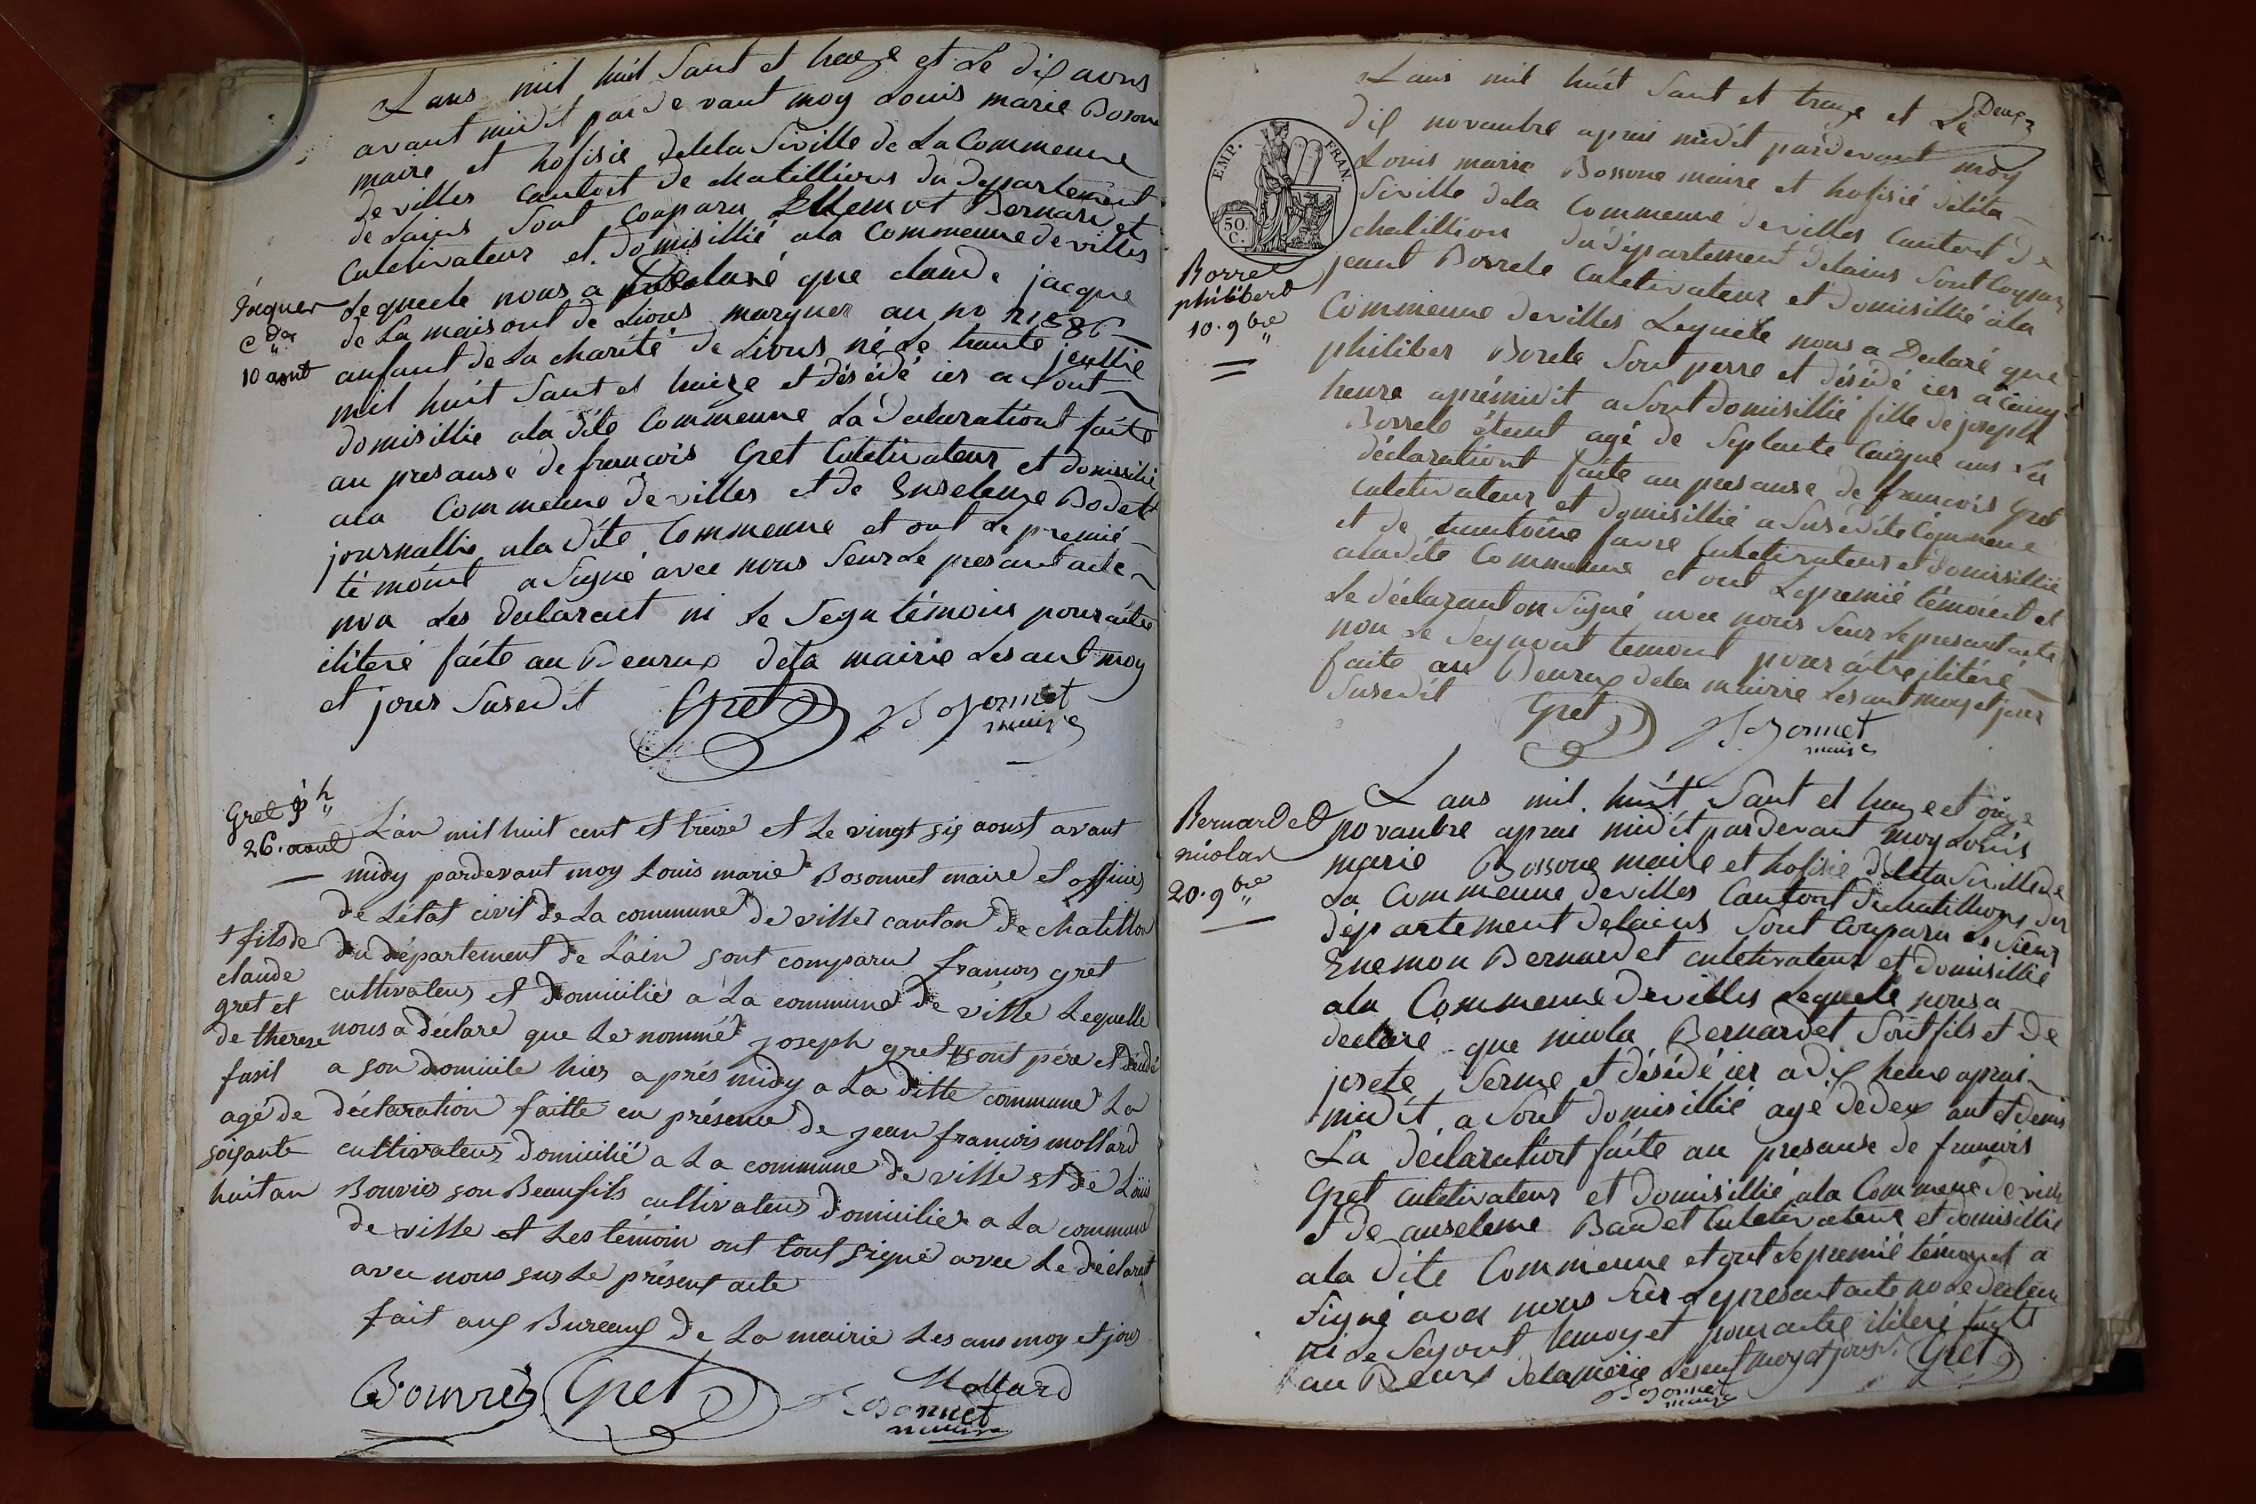 Lans mil huit Sant et traize et Le dix avous
avant midit pardevant moy Louis marie Bosone
maire et hofisie deleta Siville de La Commeune
de villes Cantont de chatillions du département
de Lains Sont Conparu Ellemont Bernard et
Culetivateur et domisillié ala Commeune de villes
Lequele nous a Déclaré que claude jacque
de La maisont de Lions marquer au no 21886
anfant de La charité de Lions né Le trante jeullié
mil huit Sant et traize et déséde ier a Sont
domisillie ala dite Commeune La déclarationt faite
au presanse de francois Gret Culetivateur et domisilié
ala Commeune de villes et de Enseleme Bodet
journallie ala dite Commeune et ont Le premié
témoint a Signé avec nous Seur Le presant acte
non Les declarant ni Le Segn témoins pour aitre
iliteré faite au Beuraux dela mairie Les ant moy
et jour Susedit Gret Bosonnet
maire
Jaquer
Cde
10 aout
Gret jph
26. aout
L'an mil huit cent et treize et Le vingt six aoust avant
midy pardevant moy Louis marie Bosonnet maire et officier
de L'état civil de La commune de ville canton de chatillon
du département de L'ain sont comparu françois gret
cultivateur et domicilié a La commune de ville Lequelle
nous a déclaré que Le nommé joseph gret + sont père et décédé
a son domicile hier après midy a La ditte commune La
déclaration faitte en présence de jean françois mollard
cultivateur domicilié a La commune de ville et de Louis
Bouvier son Beaufils cultivateur domicilier a La commune
de ville et Les témoin ont tout signé avec Le déclarant
avec nous sur Le présent acte
fait aux Bureaux de La mairie Les ans moy et jour
+ fils de
claude
gret et
de therese
fusil
agé de
soixante
huit an
Bouvier Gret Mollard
Bosonnet
maire
Deux
EMP. FRAN.
50.
C.
Lans mil huit Sant et traize et Le
dix novanbre aprais midit pardevant moy
Louis marie Bossone maire et hofisié deléta
Siville dela Commeune de villes Cantont de
chatillion du département delains Sont Conparu
jeant Borrele Culetivateur et domisillié ala
Commeune de villes Lequele nous a Declaré que
philiber Borele Sont perre et désédé ier a Cainq
heure aprémidit a Sont domisillié fille de joseph
Borrele étant agé de Septante Cainque ans La
déclarationt faite au presanse de francois Gret
culetivateur et domisillié a Susedite Commeune
et de Anntoine favre Culetivateur et domissillié
aladite Commeune et ont Le premié témoient et
Le déclarant on Signé avec nous Seur Le presant acte
non Le Seyont temont pour aitre iliteré
faite au Beuraux dela mairie Les ant moy et jour
Susedit Gret Bosonnet
maire
Borret
philibert
10. 9bre
Bernardet
nicolas
20. 9bre
Lans mil huit Sant et traize et onze
novanbre aprais midit pardevant moy Louis
marie Bossone maire et hofisie deleta Siville de
La Commeune de villes Cantont de chatillions du
département delains Sont Conparu Le Sieur
Enemon Bernardet culetivateur et domisillié
ala Commeune de villes Lequele nous a
declaré que nicola Bernardet Sont fils et De
josete Serme et désédé ier a dix heure aprais
midit a Sont domisillié agé de deux ant et demis
La déclarationt faite au presanse de francois
Gret culetivateur et domisillié ala Commeune de ville
et de anseleme Baudet Culetivateur et domisillié
ala dite Commeune et ont Le premié témoyet a
Signé avec nous Seur Le presant acte no Le declara
ni Le Seyont temoyet pour aitre iliteré faite
au Beurx dela mérie Les ent moy et jour S. Gret
Bosonnet
maire